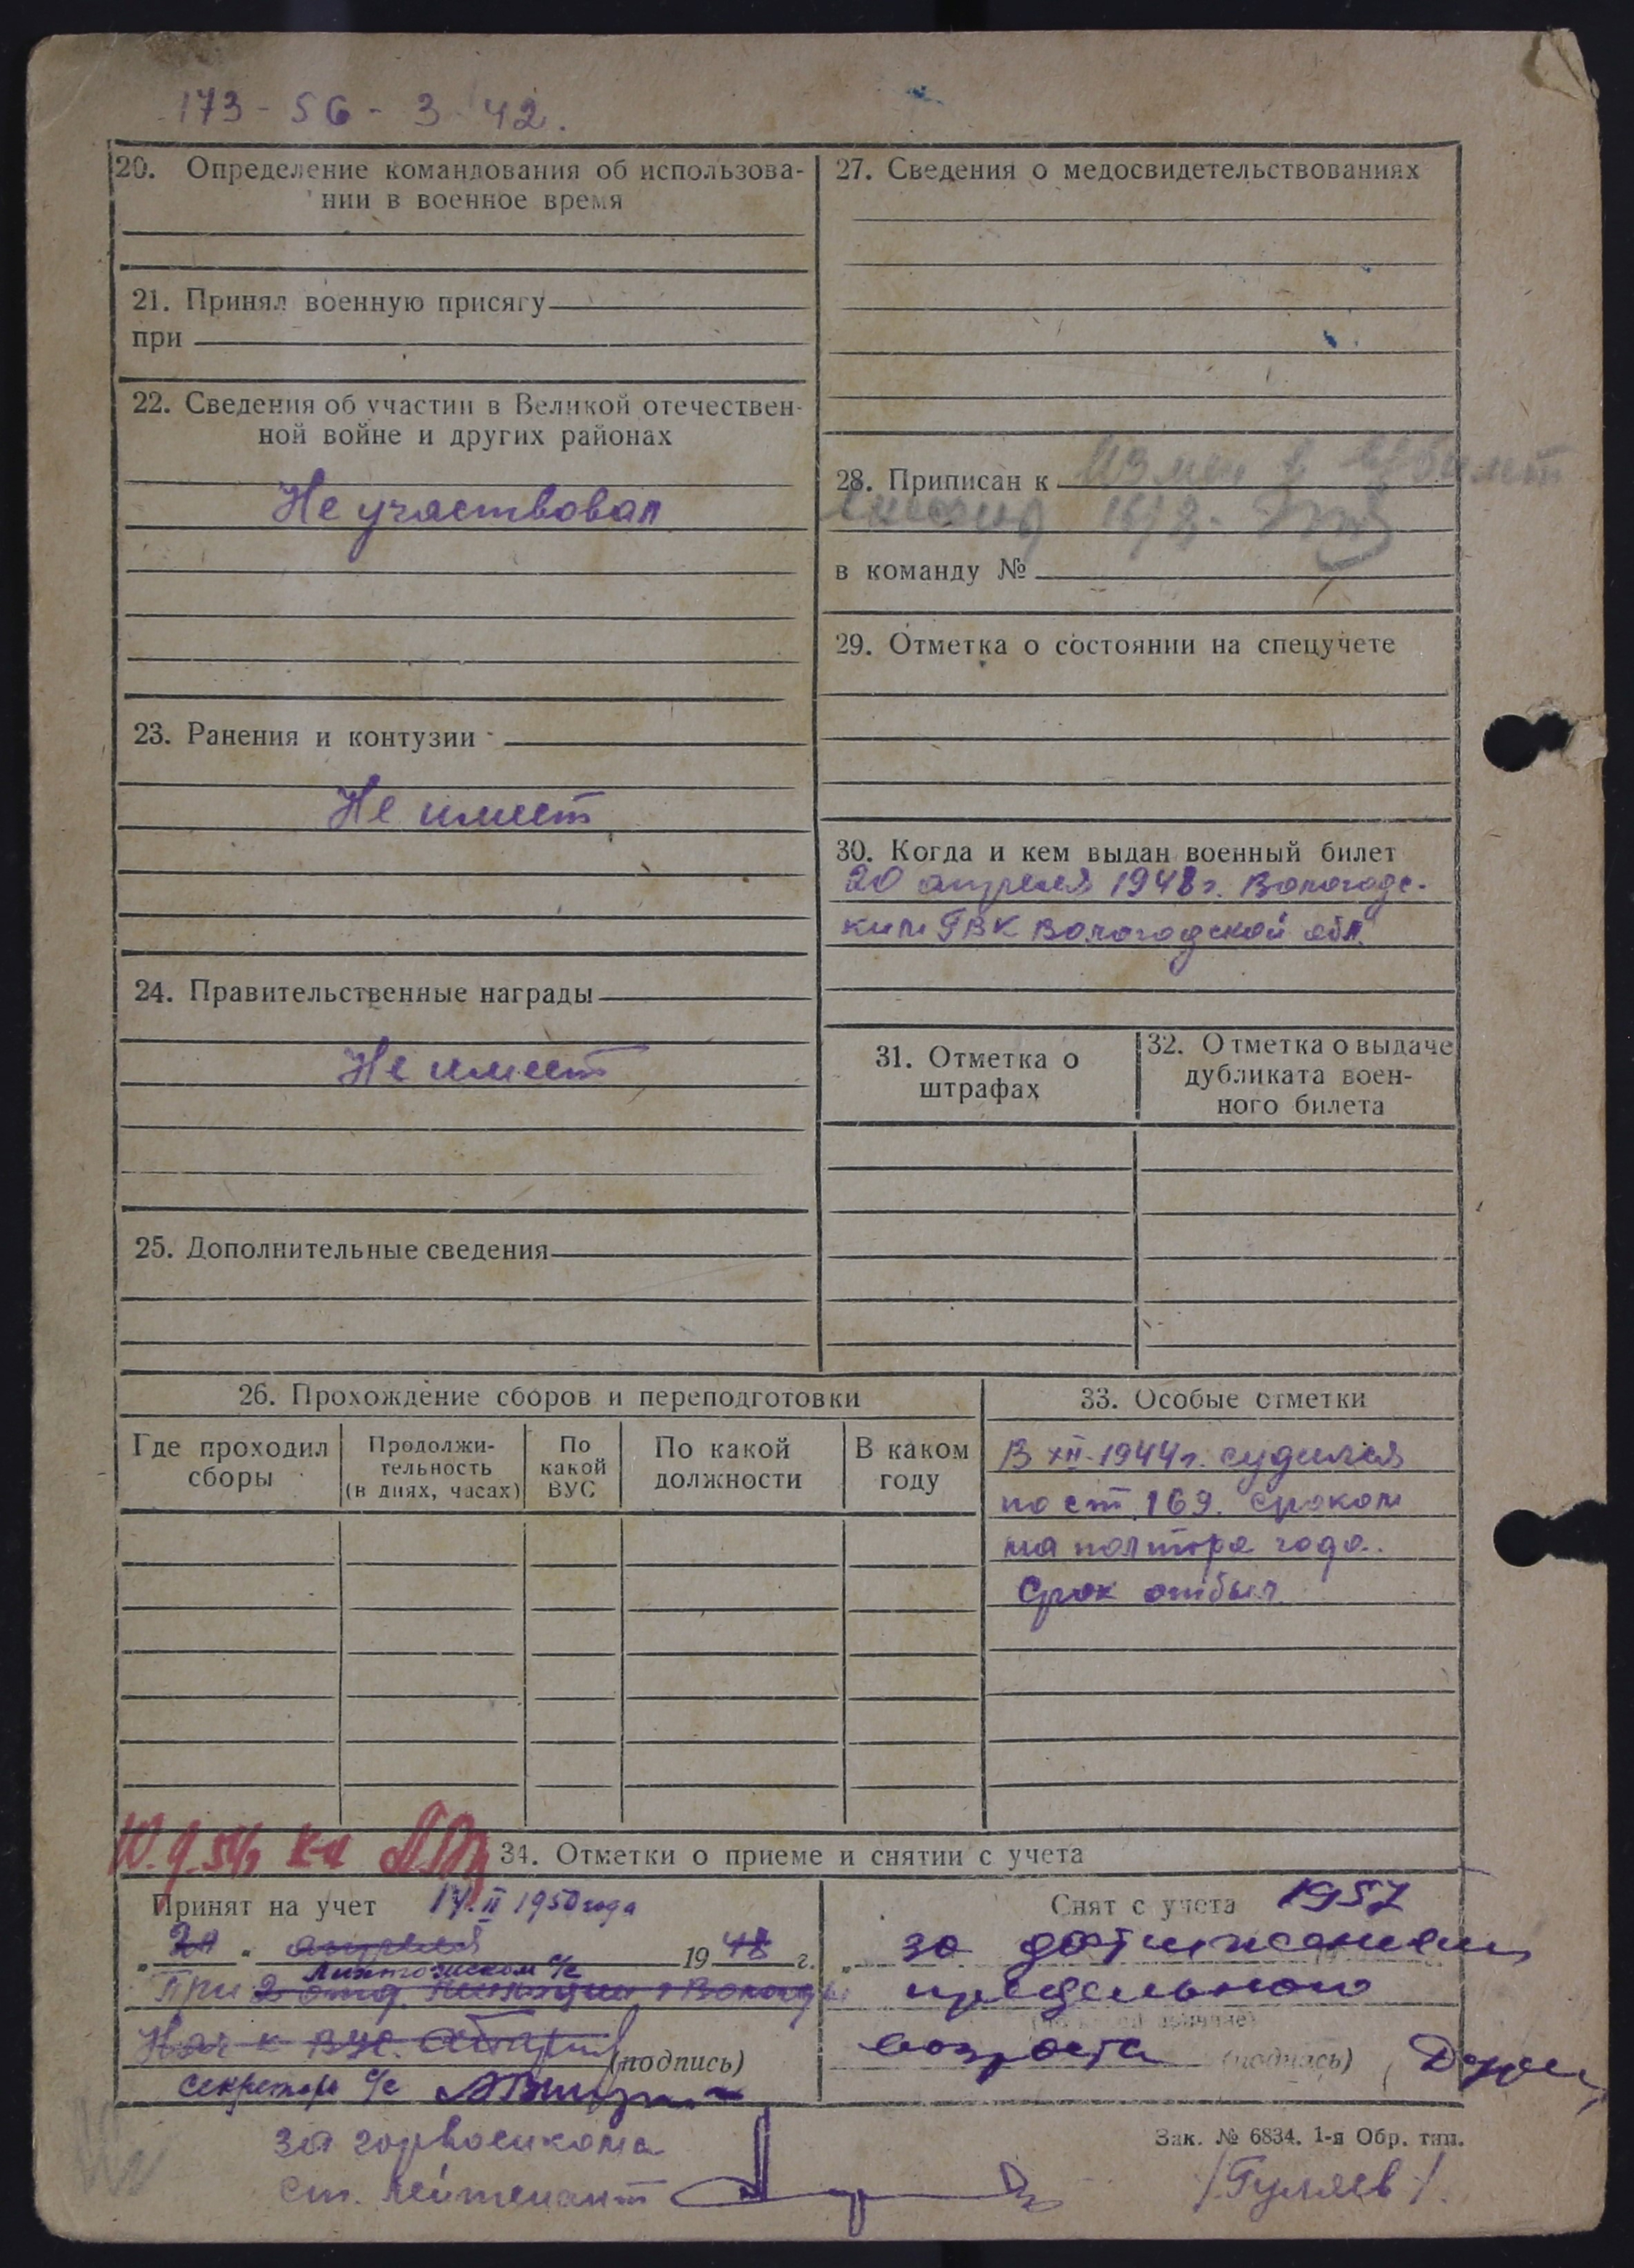 173 - 56 - 3 42.
20. Определение командования об использова-
нии в военное время
21. Принял военную присягу
при
22. Сведения об участии в Великой отечествен-
ной войне и других районах
Не участвовал
23. Ранения и контузии
Не имеет
24. Правительственные награды
Не имеет
25. Дополнительные сведения
27. Сведения о медосвидетельствованиях
28. Приписан к
в команду №
29. Отметка о состоянии на спецучете
30. Когда и кем выдан военный билет
20 апреля 1948 г. Вологодс-
ким ГВК Вологодской обл.
31. Отметка о
штрафах
32. Отметка о выдаче
дубликата воен-
ного билета
26. Прохождение сборов и переподготовки
Где проходил
сборы
Продолжи-
тельность
(в днях, часах)
По
какой
ВУС
По какой
должности
В каком
году
33. Особые отметки
В XII-1944 г. судился
по ст. 169. сроком
на полтора года.
Срок отбыл
34. Отметки о приеме и снятии с учета
Принят на учет 14.II 1950 года
апреля 1948 г.
с/с
При 2 отд. милиции г Вологды
(подпись)
секретарь с/с
Снят с учета 1957
за достижением
предельного
возраста (подпись)
за горвоенкома
ст. лейтенант
Зак. № 6834. 1-я Обр. тип.
/Гуляев/.